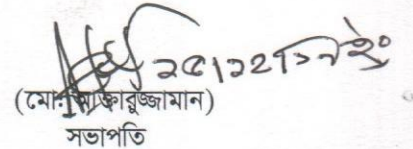 ২৫/১২/১৭ ইং
(মোঃ আক্তারুজ্জামান)
সভাপতি